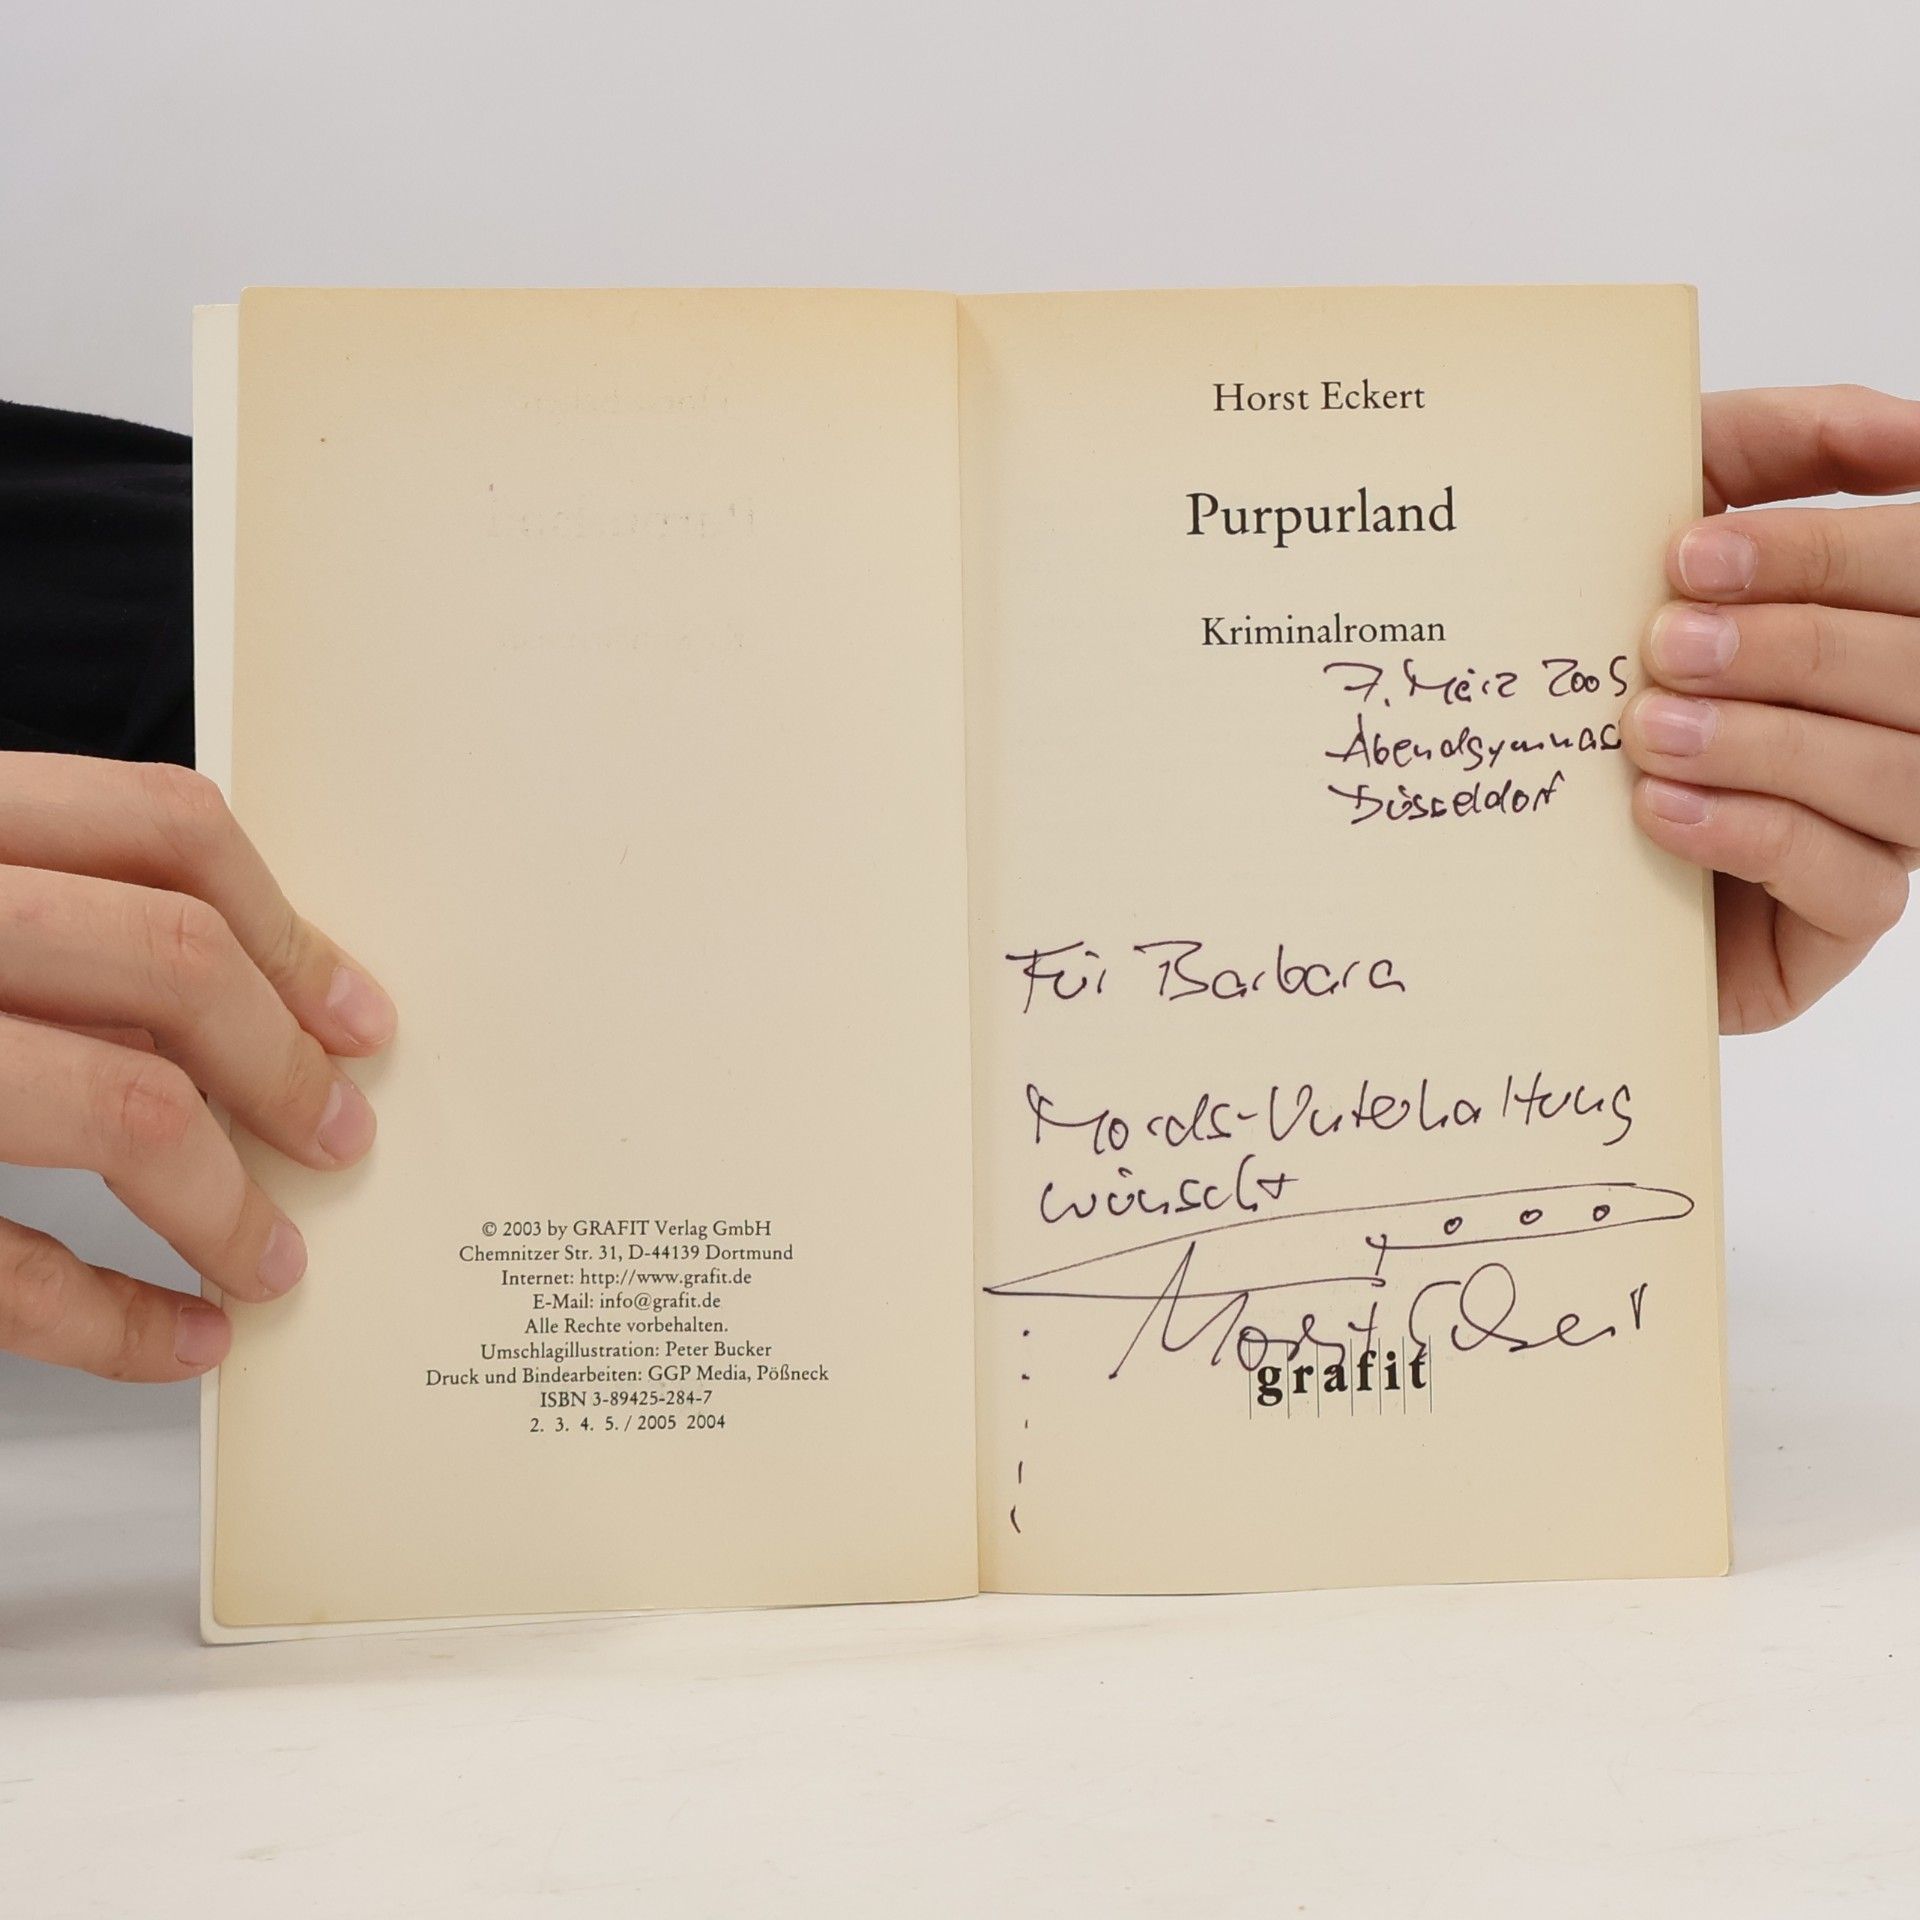 © 2003 by GRAFIT Verlag GmbH
Chemnitzer Str. 31, D-44139 Dortmund
Internet: http://www.grafit.de
E-Mail: info@grafit.de
Alle Rechte vorbehalten.
Umschlagillustration: Peter Bucker
Druck und Bindearbeiten: GGP Media, Pößneck
ISBN 3-89425-284-7
2. 3. 4. 5. / 2005 2004
Horst Eckert
Purpurland
Kriminalroman
7. März 2005
Abendgymnas
Düsseldorf
Für Barbara
Mords-Unterhaltung
wünscht
Horst Eckert
grafit